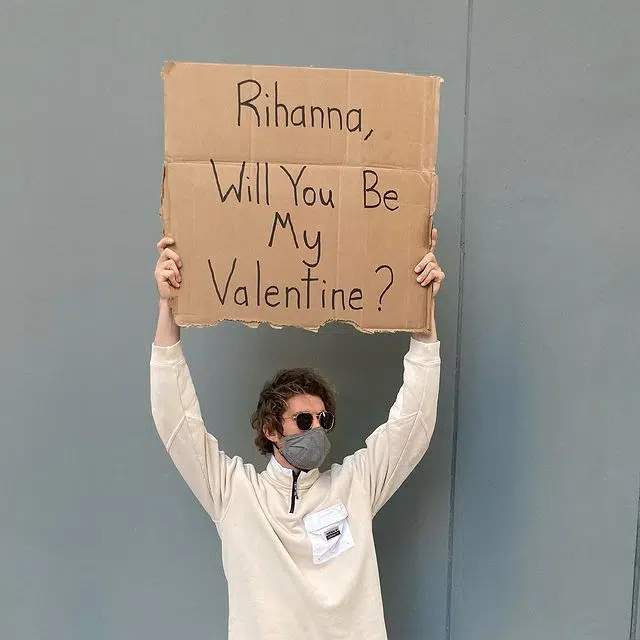 Rihanna,
Will You Be
My
Valentine?